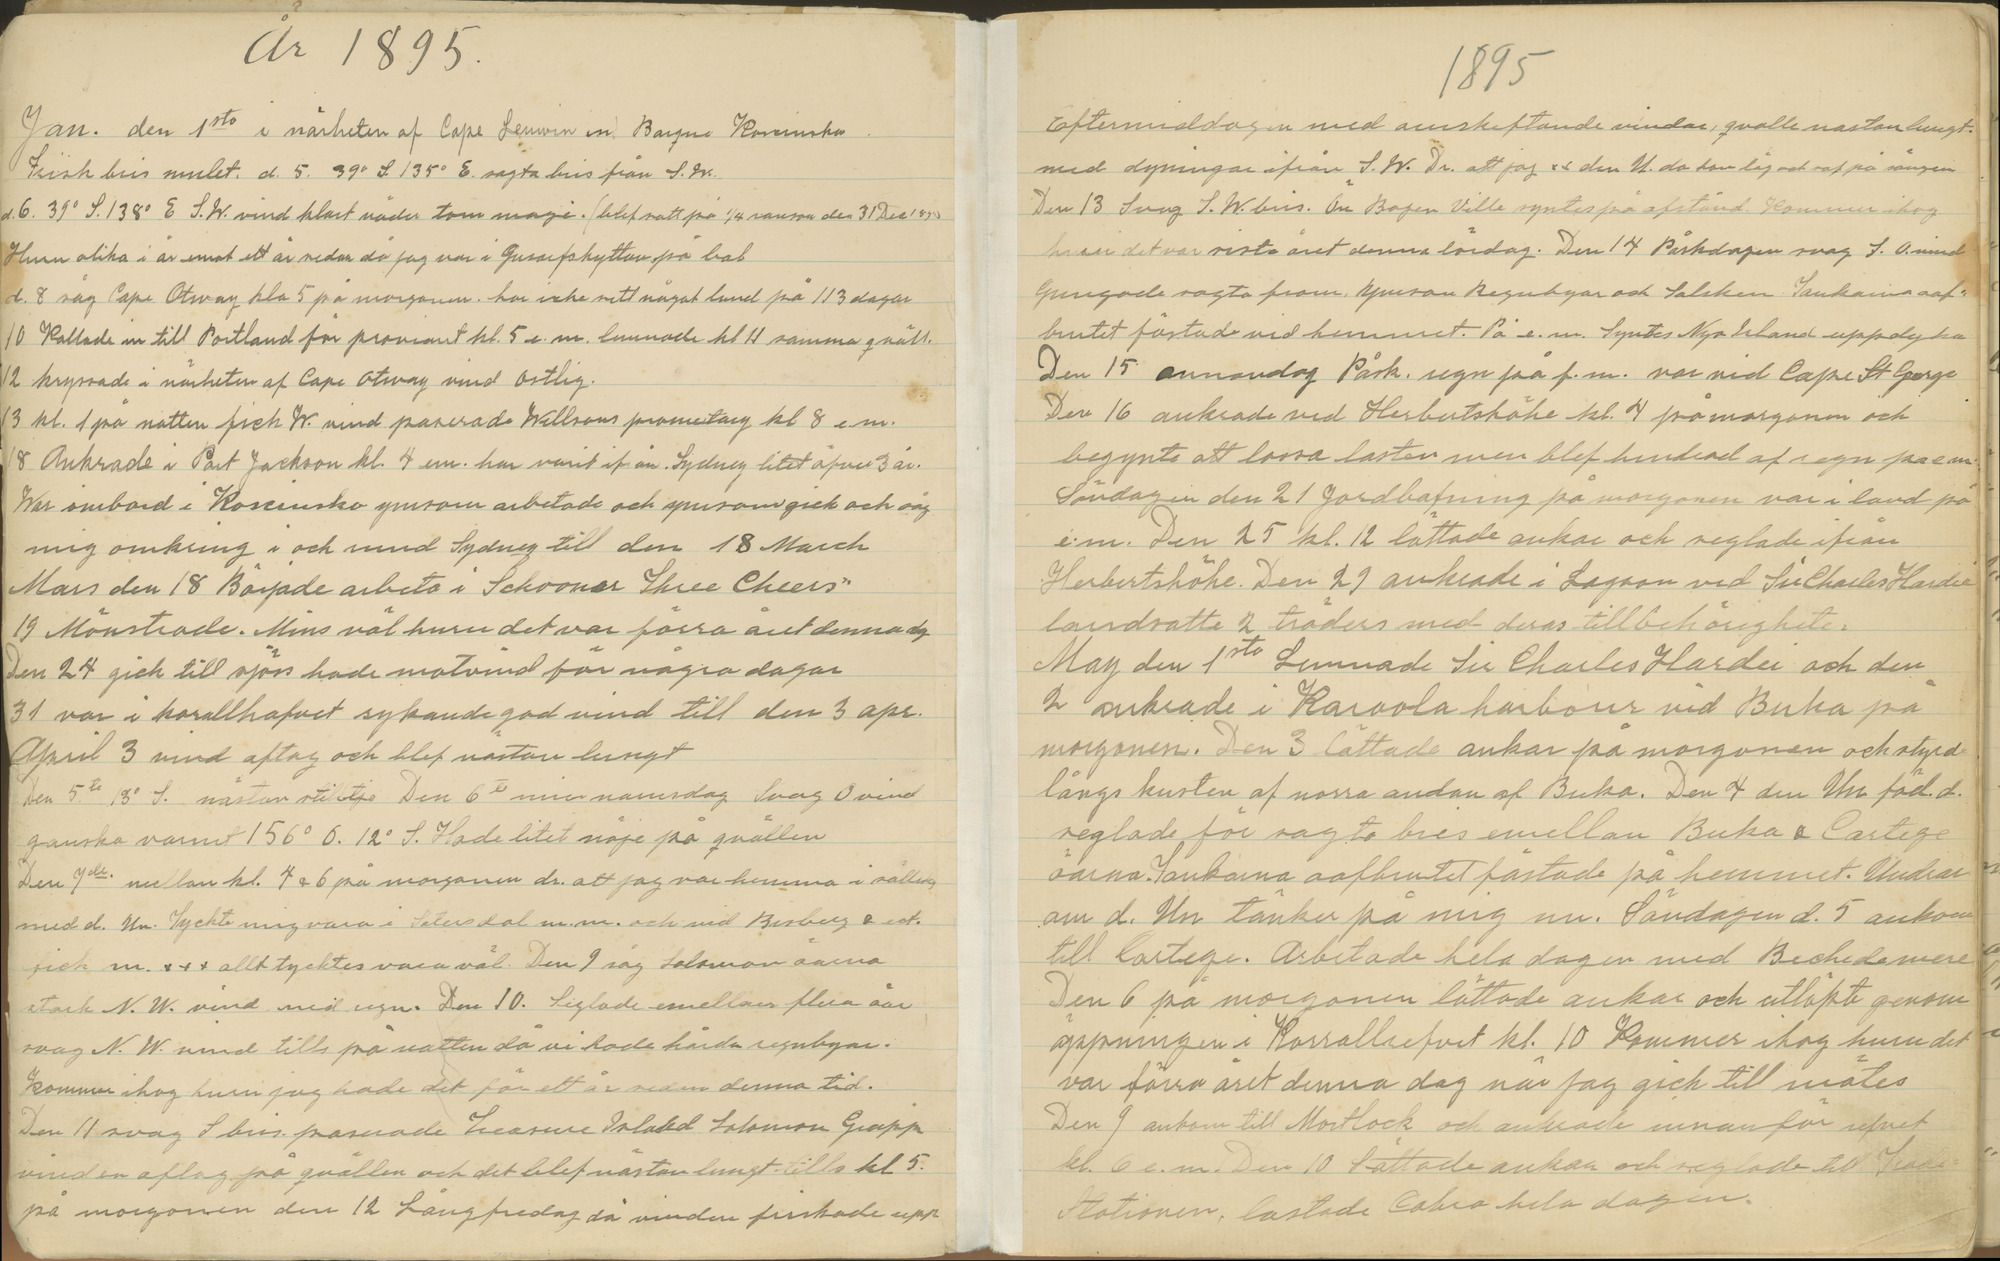 År 1895.
Jan. den 1sto i närheten af Cape Leuwin en Barque Koscinsko.
Frisk bris mulet. d. 5. 39° S. 135° E. sagta bris från S.W.
d. 6. 39° S. 138° E S.W. vind klart väder tom mage. (blef satt på 1/4 ranson den 31 Dec
Huru olika i år emot ett år sedan då jag var i Gustafshyttan på bal
d. 8 såg Cape Otway kla 5 på morgonen. har icke sett något land på 113 dagar
10 Kallade in till Portland för proviant kl. 5 e. m. lemnade kl 11 samma qväll.
12 kryssade i närheten af Cape Otway vind Ostlig.
13 kl. 1 på natten fick W. vind passerade Willsons promentary kl 8 e.m.
18 Ankrade i Port Jackson kl. 4 em. har varit ifrån Sydney litet öfver 3 år.
War ombord i Koscinsko ymsom arbetade och ymsom gick och såg
mig omkring i och rund Sydney till den 18 March
Mars den 18 Började arbeta i Schooner Three Cheers"
19 Mönstrade. Mins väl huru det var förra året denna dg
Den 24 gick till sjöss hade motvind för några dagar
31 var i korallhafvet rykande god vind till den 3 apr.
April 3 vind aftog och blef nästan lungt
Den 5.te 13° S. nästan stiltje Den 6te min namnsdag Svag O vind
ganska varmt 156° O. 12° S. Hade litet nöje på qvällen
Den 7de. mellan kl. 4 & 6 på morgonen dr. att jag var hemma i sällskap
med d. Un. Tyckte mig vara i Sätersdal m.m. och vid Bisberg & ect.
fick m. xxx allt tycktes vara väl. Den 9 såg Solomon öarna
stark N. W. vind med regn. Den 10. Seglade emellan flera öar
svag N. W. vind tills på natten då vi hade hårda regnbyar.
Kommer ihog huru jag hade det för ett år sedan denna tid.
Den 11 svag S bris. passerade Treasure Island Solomon Grupp
vinden aftog på qvällen och det blef nästan lungt tills kl 5.
på morgonen den 12 Långfredag då vinden friskade upp
1895
Eftermiddagen med omskiftande vindar, qvälle nästan lungt.
med dyningar ifrån S. W. Dr. att jag xx den U. då hon låg och sof på sängen
Den 13 Svag S. W. bris. Ön Bogen Ville syntes på afstånd. Kommer ihog
huru det var sista året denna lördag. Den 14 Påskdagen svag S. O. vind
Gungade sagta fram. Ymsom Regnbyar och Solsken Tankarna oaf-
brutet fästade vid hemmet. På e. m. Syntes Nya Irland uppdyka
Den 15 annandag Påsk. regn på f. m. var vid Cape St George
Den 16 ankrade ved Herbertshöhe kl. 4 på morgonen och
begynte att lossa lasten men blef hindrad af regn på e m.
Söndagen den 21 Jordbäfning på morgonen var i land på
e.m. Den 25 kl. 12 lättade ankar och seglade ifrån
Herbertshöhe. Den 29 ankrade i Lagoon ved Sir Charles Hardie
landsatte 2 träders med deras tillbehörigheter.
May den 1sto Lemnade Sir Charles Hardei och den
2 ankrade i Karoola harbour vid Buka på
morgonen. Den 3 lättade ankar på morgonen och styrde
långs kusten af norra ändan af Buka. Den 4 den Un föd. d.
seglade för sagta bris emellan Buka & Cartege
öarna. Tankarna oafbrutet fästade på hemmet. Undrar
om d. Un tänker på mig nu. Söndagen d. 5 ankom
till Cartege. Arbetade hela dagen med Bechedemere
Den 6 på morgonen lättade ankar och utlöpte genom
öppningen i Korrallrefvet kl. 10 Kommer ihog huru det
var förra året denna dag när jag gick till mötes
Den 9 ankom till Mortlock och ankrade innanför refvet
kl. 6 e. m. Den 10 Lättade ankar och seglade till Trade
Stationen, lastade Cobra hela dagen.